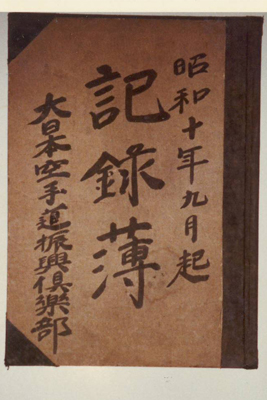 昭和十年九月起
記録薄
大日本空手道振興倶楽部